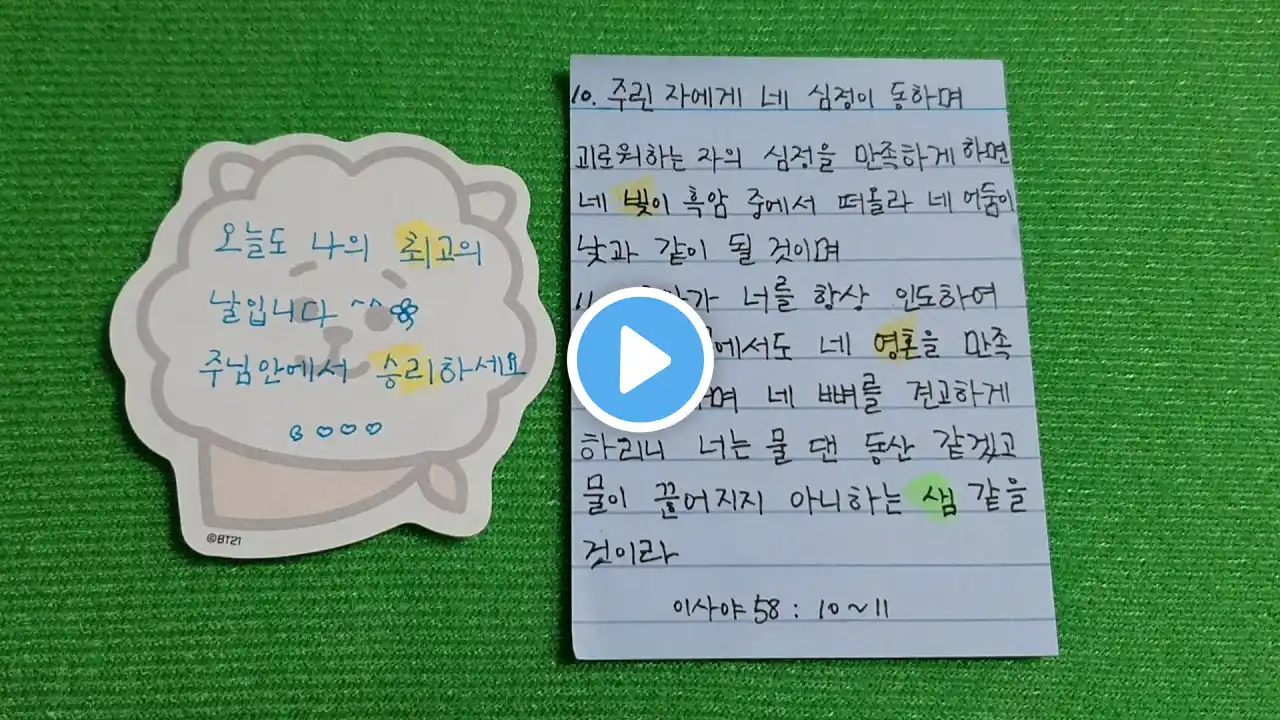 오늘도 나의 최고의
날입니다 ^^
주님안에서 승리하세요
©BT21
10. 주린 자에게 네 심정이 동하며
괴로워하는 자의 심정을 만족하게 하면
네 빛이 흑암 중에서 떠올라 네 어둠이
낮과 같이 될 것이며
11. 너를 항상 인도하여
에서도 네 영혼을 만족
며 네 뼈를 견고하게
하리니 너는 물 댄 동산 같겠고
물이 끊어지지 아니하는 샘 같을
것이라
이사야 58 : 10~11